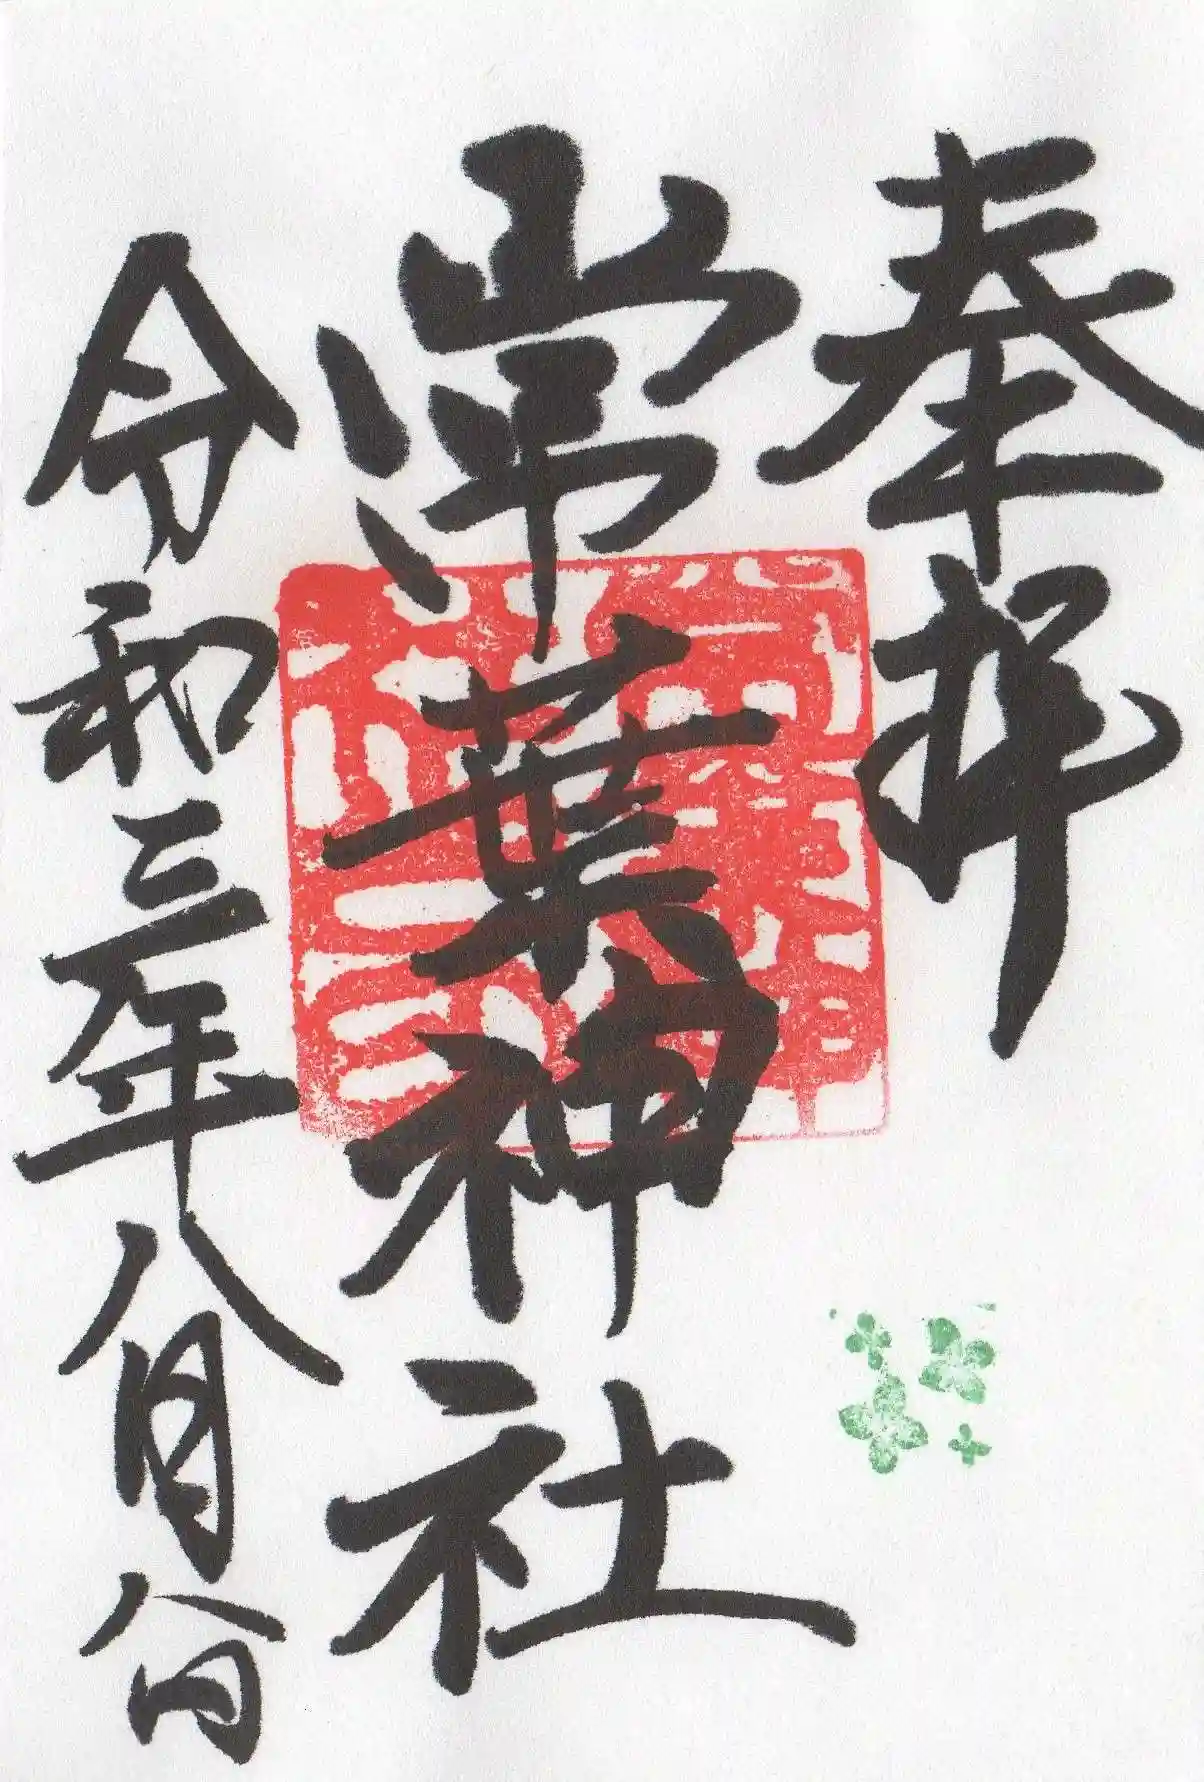 奉拝
常葉神社
令和三年八月八日